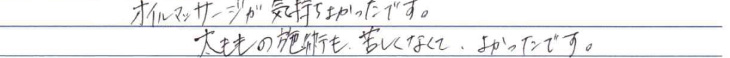 オイルマッサージが気持ちよかったです。
太ももの施術も、苦しくなくて、よかったです。